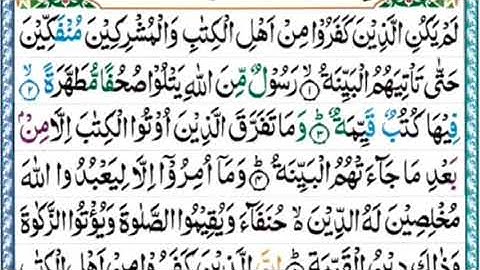 لَمْ يَكُنِ الَّذِيْنَ كَفَرُوْا مِنْ اَهْلِ الْكِتٰبِ وَالْمُشْرِكِيْنَ مُنْفَكِّيْنَ
حَتّٰى تَاْتِيَهُمُ الْبَيِّنَةُ ۙ‏﴿۱﴾ رَسُوْلٌ مِّنَ اللّٰهِ يَتْلُوْا صُحُفًا مُّطَهَّرَةً ۙ‏﴿۲﴾
فِيْهَا كُتُبٌ قَيِّمَةٌ ؕ‏﴿۳﴾ وَمَا تَفَرَّقَ الَّذِيْنَ اُوْتُوا الْكِتٰبَ اِلَّا مِنْۢ
بَعْدِ مَا جَآءَتْهُمُ الْبَيِّنَةُ ؕ‏﴿۴﴾ وَمَاۤ اُمِرُوْۤا اِلَّا لِيَعْبُدُوا اللّٰهَ
مُخْلِصِيْنَ لَهُ الدِّيْنَ ۙ۬ حُنَفَآءَ وَيُقِيْمُوا الصَّلٰوةَ وَيُؤْتُوا الزَّكٰوةَ
وَذٰلِكَ دِيْنُ الْقَيِّمَةِ ؕ اِنَّ الَّذِيْنَ كَفَرُوْا مِنْ اَهْلِ الْكِتٰبِ